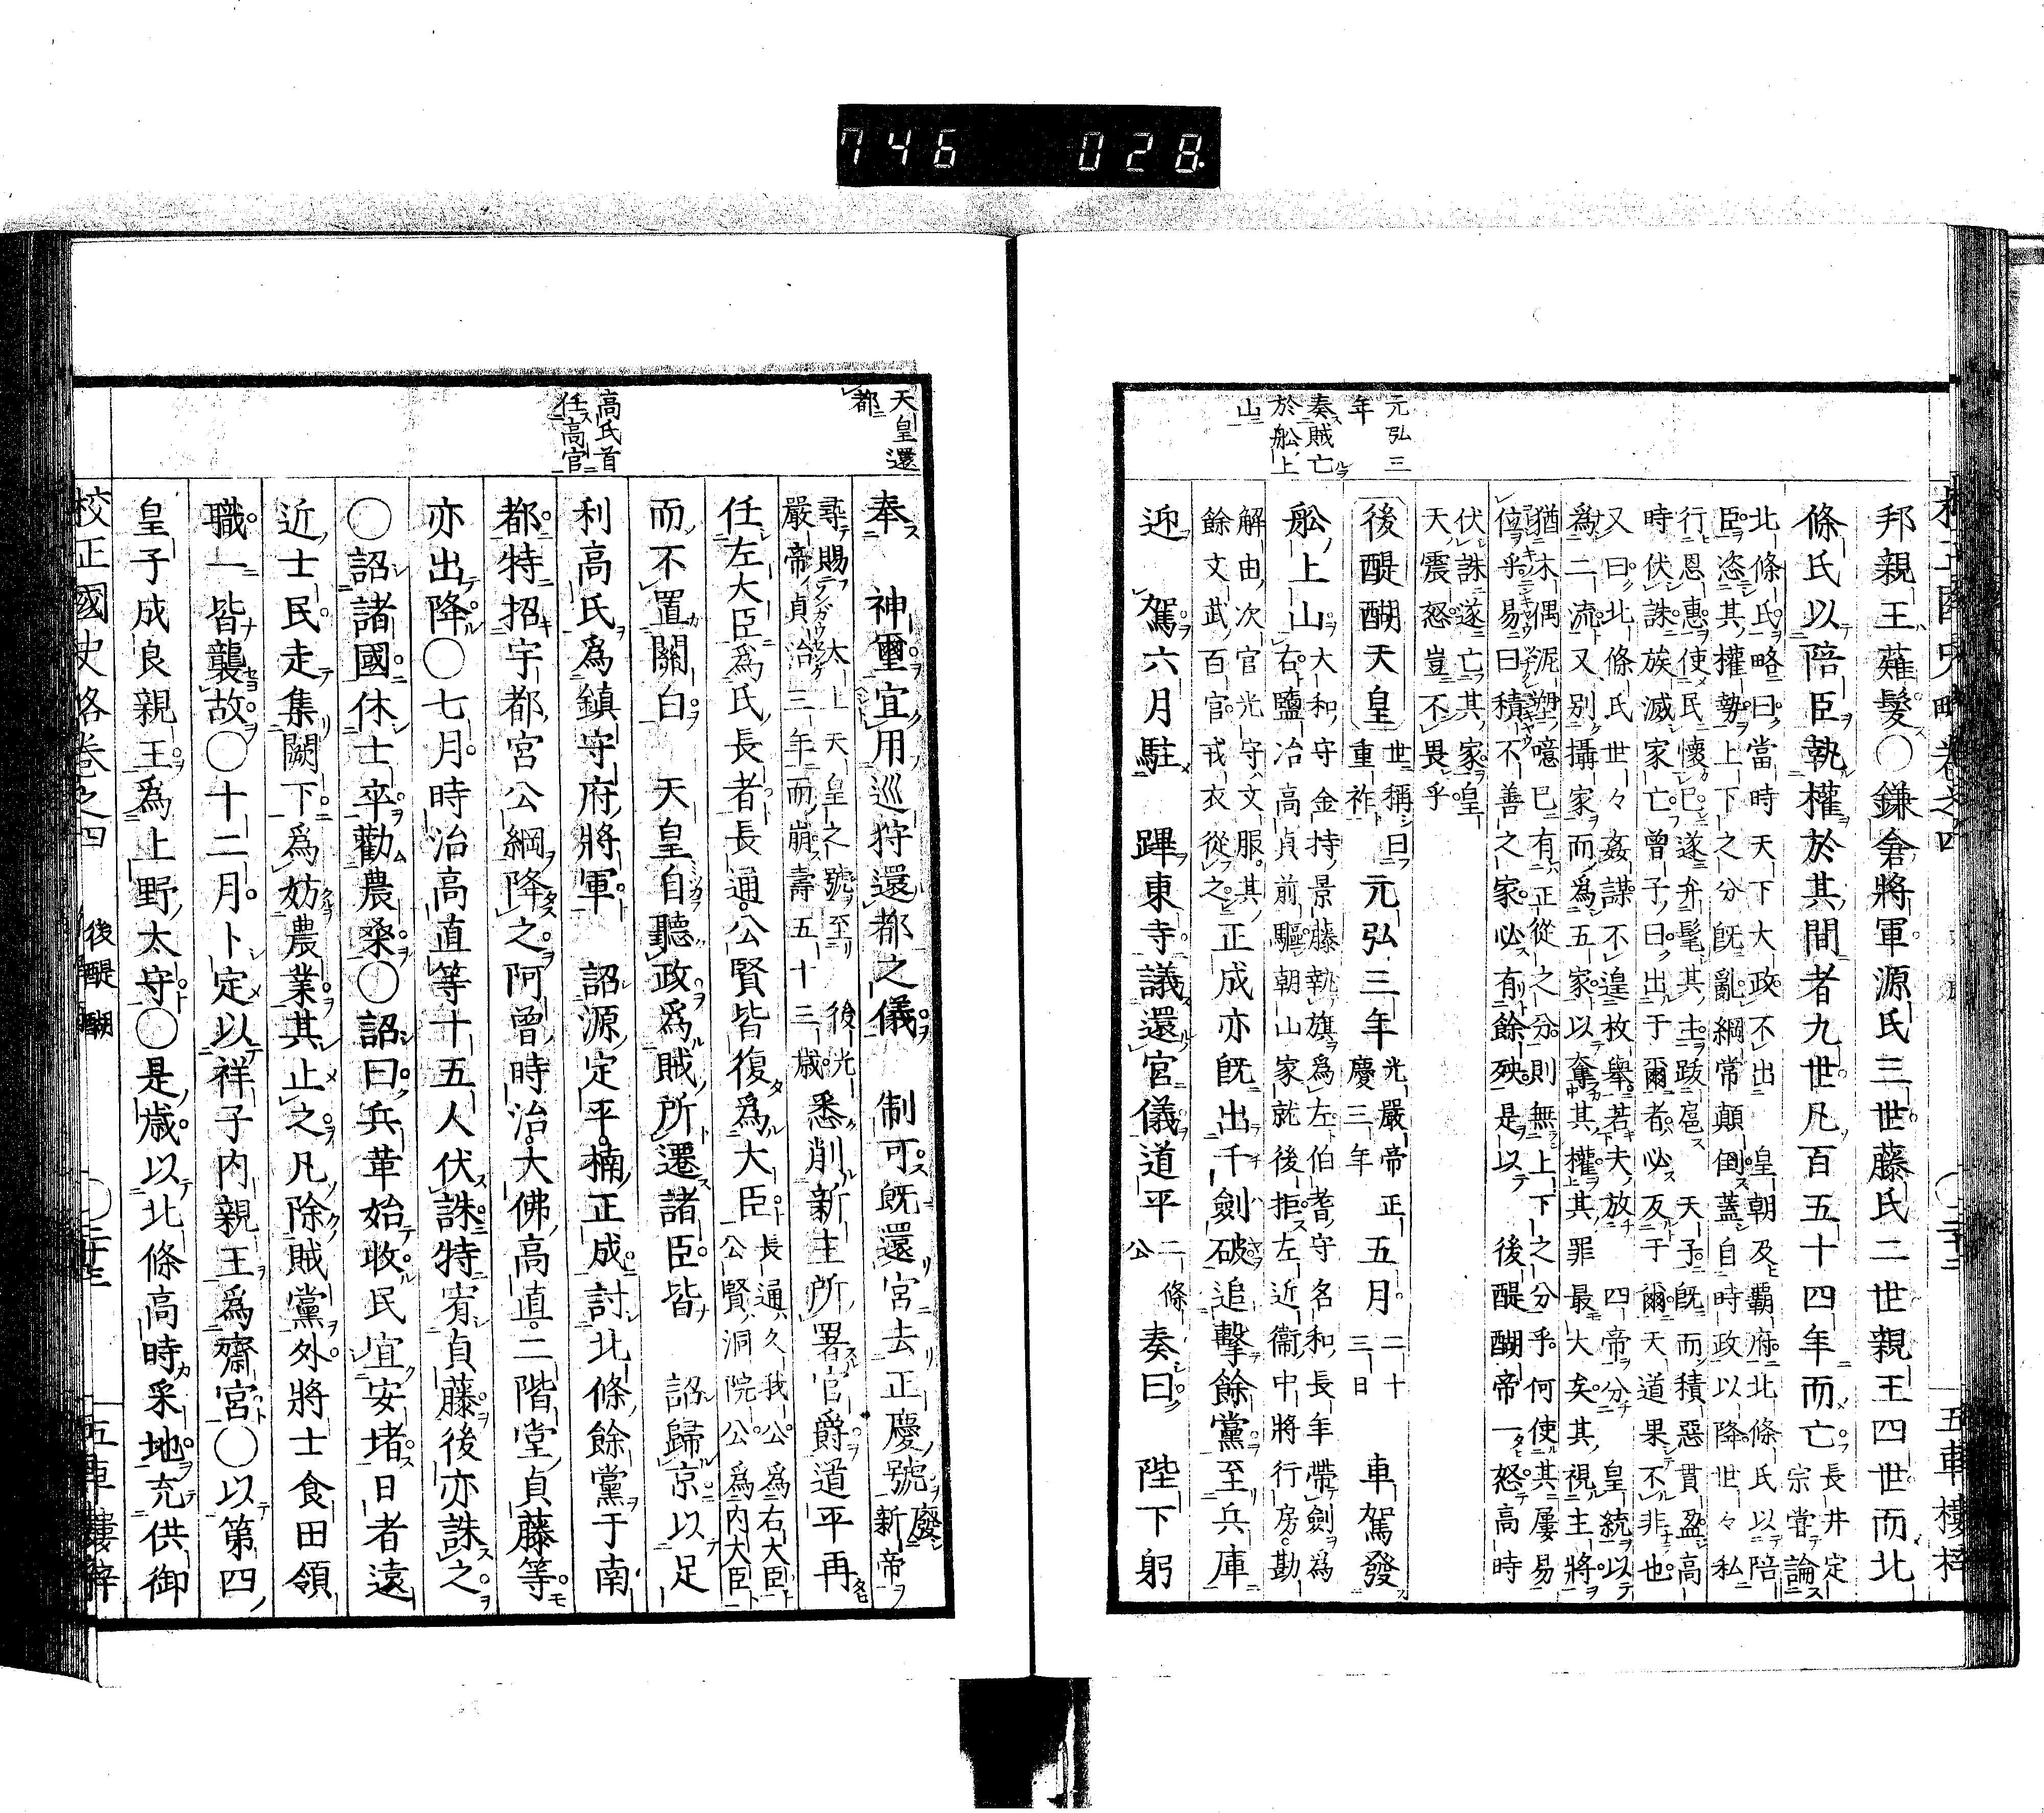 元弘三
年
奏賊亡
於舩上
山
邦親王薙髮〇鎌倉將軍源氏三世藤氏二世親王四世而北
條氏以陪臣執權於其間者九世凡百五十四年而亡長井定
宗嘗論
北條氏略曰當時天下大政不出　皇朝及覇府北條氏以陪
臣恣其權勢上下之分既亂綱常顛倒蓋自時政以降世々私
行恩惠使民懷已遂弁髦其主跋扈　天子既而積惡貫盈高
時伏誅族滅家亡曾子曰出于爾者必反于爾天道果不非也
又曰北條氏世々姦謀不遑枚舉若夫放　四帝分　皇統以
爲二流又別攝家而爲五家以奪其權其罪最大矣其視主將
猶木偶泥塑噫已有正從之分則無上下之分乎何使其屢易
位乎易曰積不善之家必有餘殃是以　後醍醐帝一怒高時
伏誅遂亡其家皇
天震怒豈不畏乎
後醍醐天皇世稱曰
重祚元弘三年光嚴帝正
慶三年五月二十
三日車駕發
舩上山大和守金持景藤執旗爲左伯耆守名和長年帶劍爲
右鹽冶高貞前驅朝山家就後拒左近衞中將行房勘
解由次官光守文服其
餘文武百官戎衣從之正成亦既出千劍破追擊餘黨至兵庫
迎　駕六月駐　蹕東寺議還宮儀道平二條
公奏曰　陛下躬
天皇還
都
高氏首
任高官
奉　神璽宜用巡狩還都之儀　制可既還宮去正慶號廢
新帝
尋賜　太上天皇之號至　後光
嚴帝貞治三年而崩壽五十三歲悉削新主所署官爵道平再
任左大臣爲氏長者長通公賢皆復爲大臣長通久我公爲右大臣
公賢洞院公爲內大臣
而不置關白　天皇自聽政爲賊所遷諸臣皆　詔歸京以足
利高氏爲鎭守府將軍　詔源定平楠正成討北條餘黨于南
都特招宇都宮公綱降之阿曾時治大佛高直二階堂貞藤等
亦出降〇七月時治高直等十五人伏誅特宥貞藤後亦誅之
〇詔諸國休士卒勸農桑〇詔曰兵革始收民宜安堵日者遠
近士民走集闕下爲妨農業其止之凡除賊黨外將士食田領
職一皆襲故〇十二月卜定以祥子內親王爲齋宮〇以第四
皇子成良親王爲上野太守〇是歲以北條高時采地充供御
校正國史略卷之四　後醍醐　五車樓梓
746 028